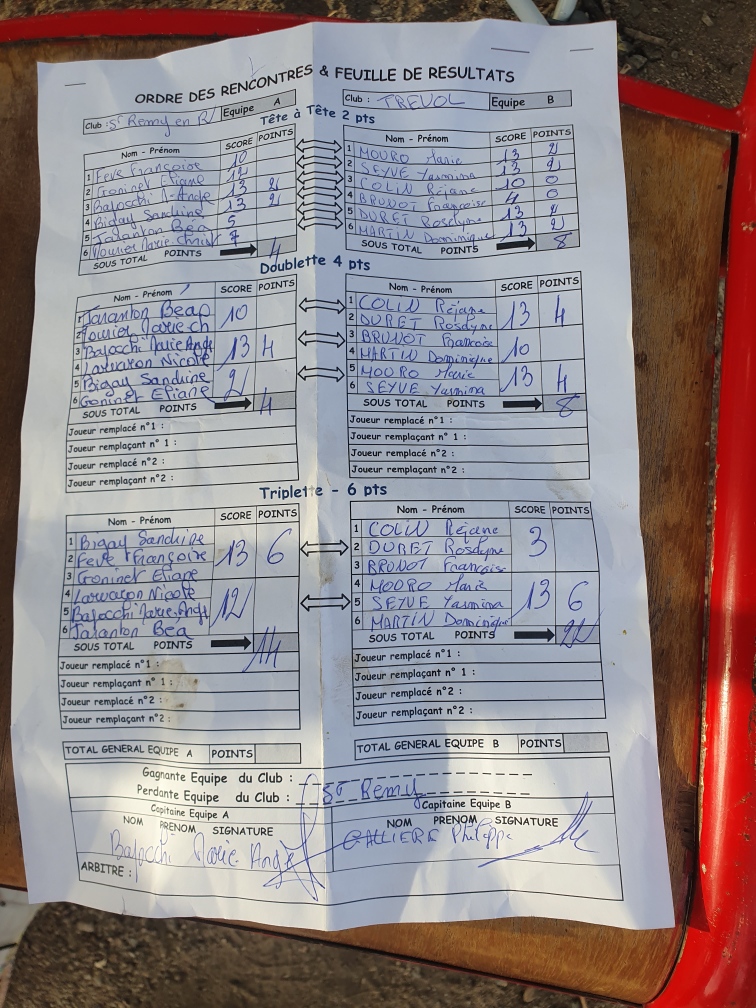 ORDRE DES RENCONTRES & FEUILLE DE RESULTATS
Club : St Remy en R/ Equipe A
Club : TREVOL Equipe B
Tête à Tête 2 pts
Nom - Prénom SCORE POINTS
1 Feve Françoise 10
2 Goninet Eliane 12
3 Bafocchi M-Ange 13 2
4 Bigay Sandrine 13 2
5 Taranton Béa 5
6 Marie Christ 7
SOUS TOTAL POINTS 4
Nom - Prénom SCORE POINTS
1 MOURO Marie 13 2
2 SEYVE Yasmina 13 2
3 COLIN Réjane 10 0
4 BRUNOT Françoise 4 0
5 DURET Roselyne 13 2
6 MARTIN Dominique 13 2
SOUS TOTAL POINTS 8
Doublette 4 pts
Nom - Prénom SCORE POINTS
1 Taranton Béa 10
2 Marie ch
3 Bafocchi Marie Ange 13 4
4 Larvaron Nicole
5 Bigay Sandrine 2
6 Goninet Eliane
SOUS TOTAL POINTS 4
Joueur remplacé n°1 :
Joueur remplaçant n° 1 :
Joueur remplacé n°2 :
Joueur remplaçant n°2 :
Nom - Prénom SCORE POINTS
1 COLIN Réjane 13 4
2 DURET Roselyne
3 BRUNOT Francoise 10
4 MARTIN Dominique
5 MOURO Marie 13 4
6 SEYVE Yasmina
SOUS TOTAL POINTS 8
Joueur remplacé n°1 :
Joueur remplaçant n° 1 :
Joueur remplacé n°2 :
Joueur remplaçant n°2 :
Triplette - 6 pts
Nom - Prénom SCORE POINTS
1 Bigay Sandrine 13 6
2 Feve Françoise
3 Goninet Eliane
4 Larvaron Nicole 12
5 Bafocchi Marie Ange
6 Taranton Béa
SOUS TOTAL POINTS 14
Joueur remplacé n°1 :
Joueur remplaçant n° 1 :
Joueur remplacé n°2 :
Joueur remplaçant n°2 :
Nom - Prénom SCORE POINTS
1 COLIN Réjane 3
2 DURET Roselyne
3 BRUNOT Francoise
4 MOURO Marie 13 6
5 SEYVE Yasmina
6 MARTIN Dominique
SOUS TOTAL POINTS 22
Joueur remplacé n°1 :
Joueur remplaçant n° 1 :
Joueur remplacé n°2 :
Joueur remplaçant n°2 :
TOTAL GENERAL EQUIPE A POINTS
TOTAL GENERAL EQUIPE B POINTS
Gagnante Equipe du Club :
Perdante Equipe du Club : St Remy
Capitaine Equipe A
NOM PRENOM SIGNATURE
Bafocchi Marie Ange
Capitaine Equipe B
NOM PRENOM SIGNATURE
GALLIERE Philippe
ARBITRE :